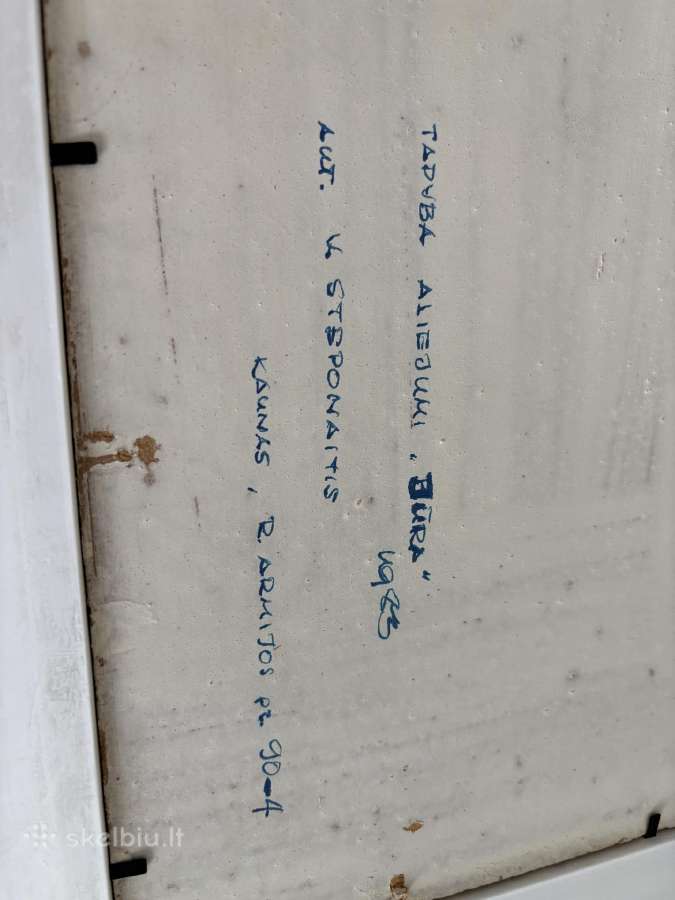 TAPYBA ALIEJUMI „BŪRA"
AUT. V. STEPONAITIS
KAUNAS, R. ARMIJOS pr. 90-4
skelbiu.lt